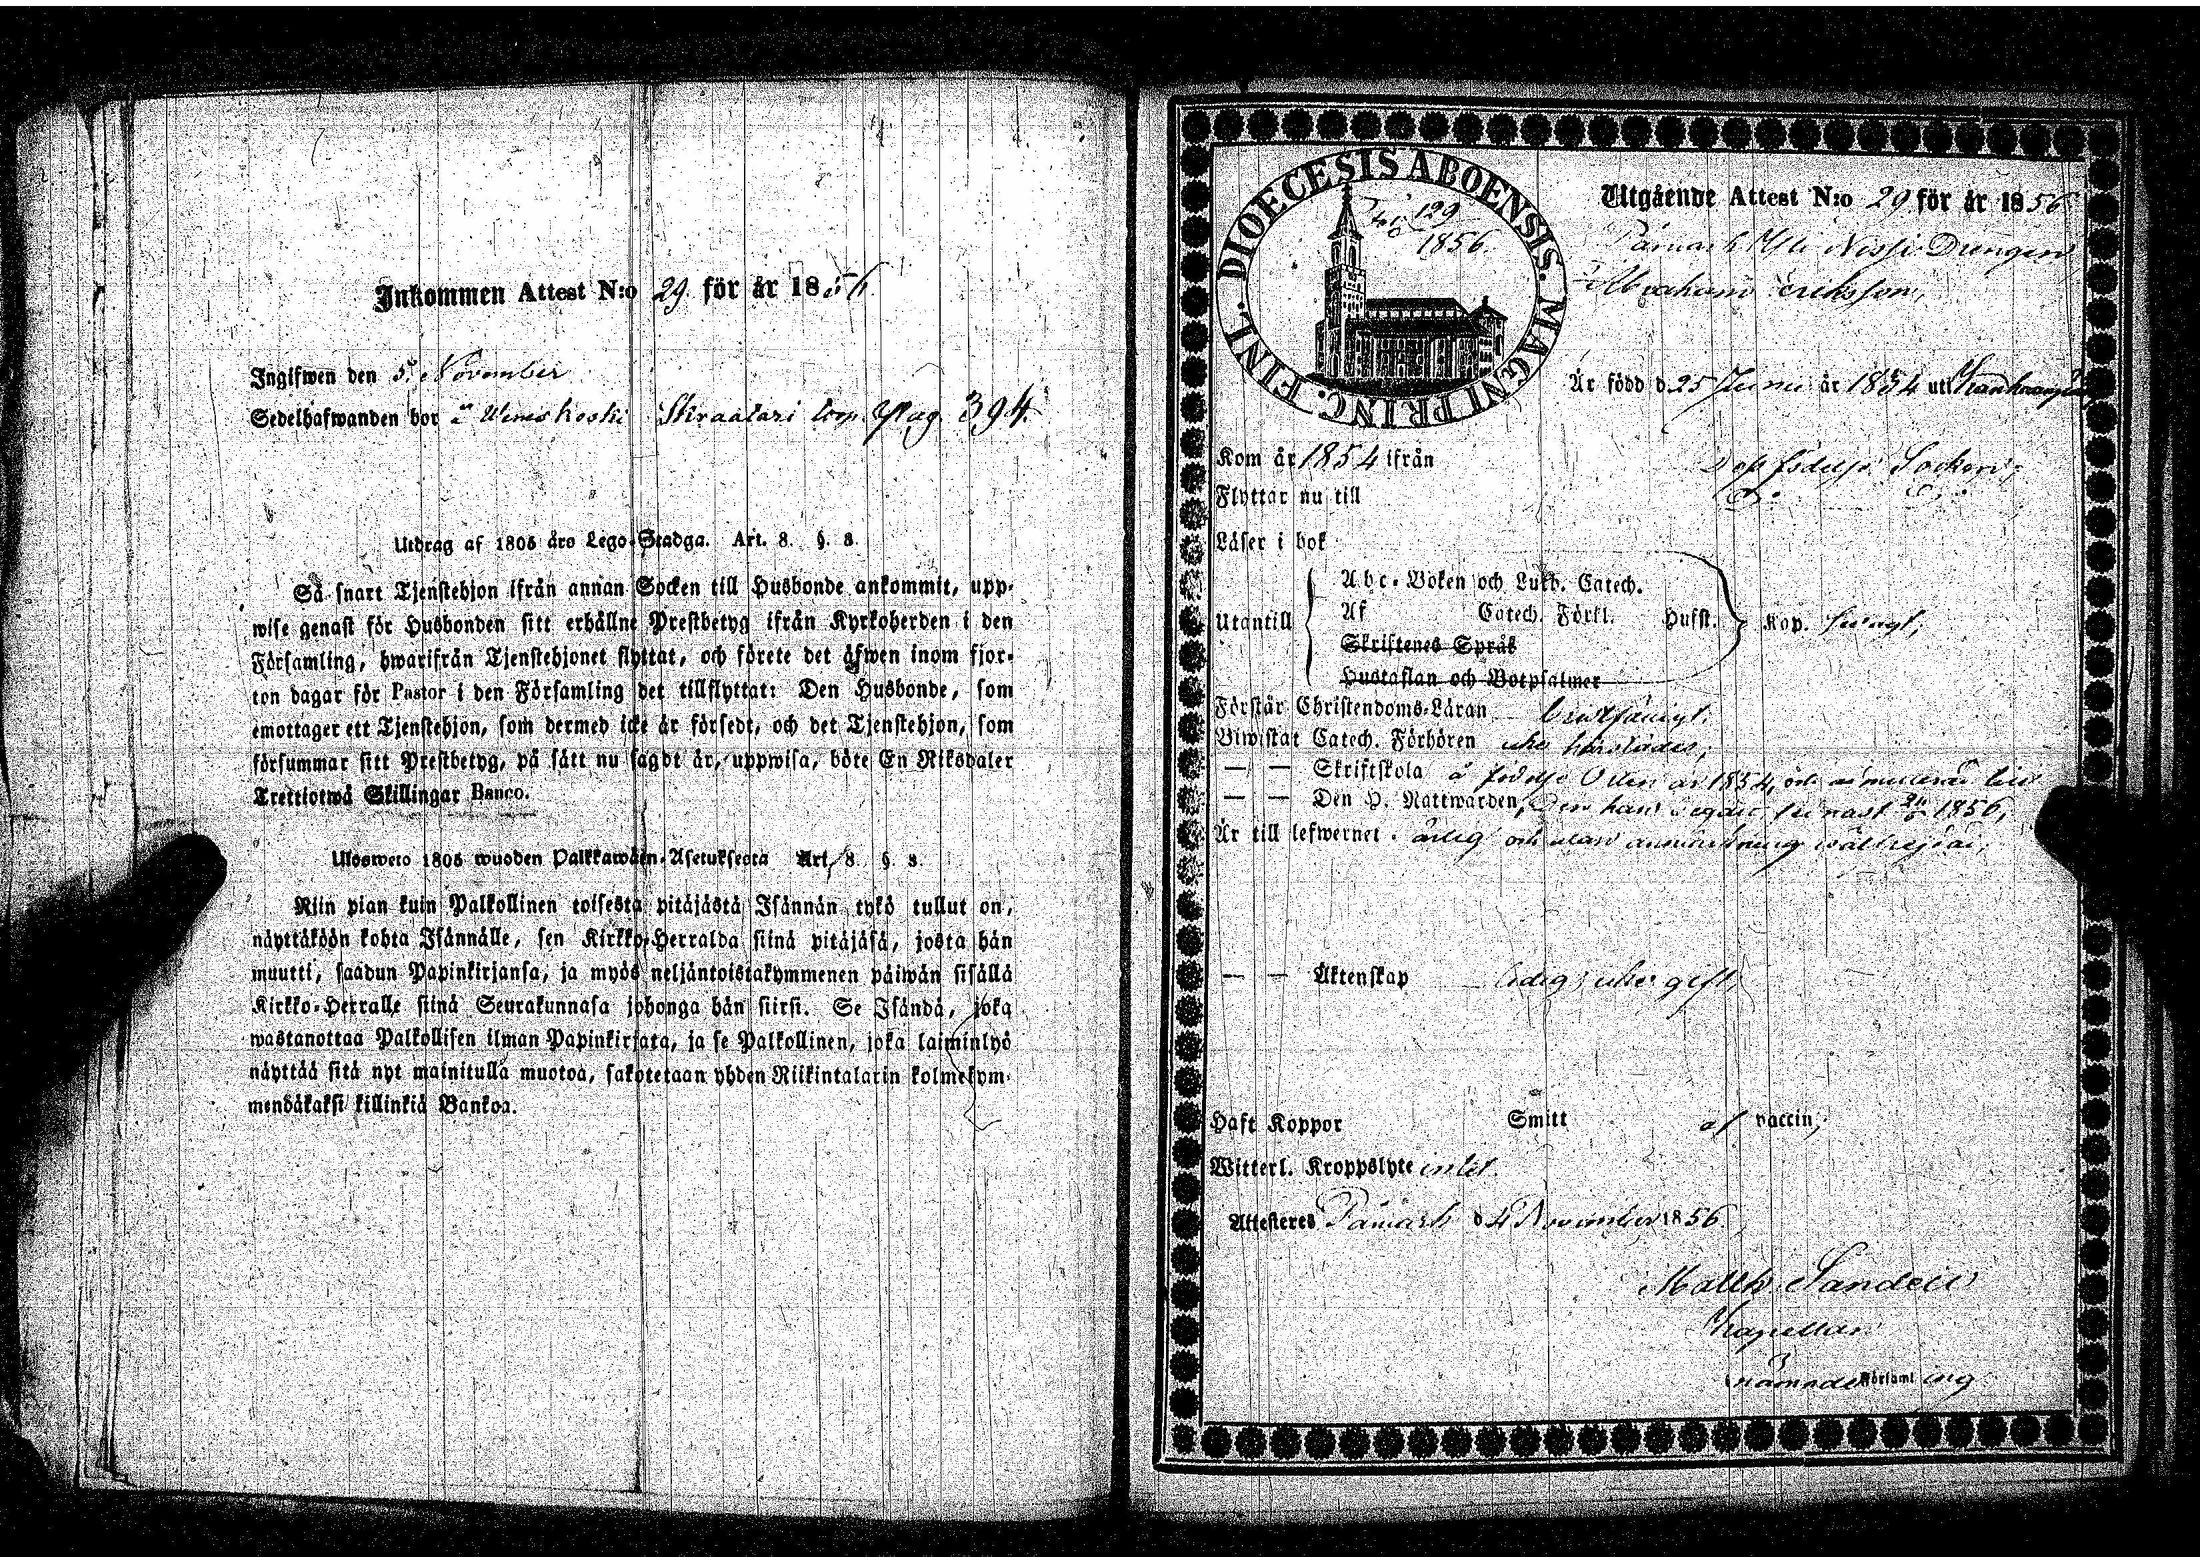 Inkommen Attest N:o 29 för år 1856
Ingifwen den 5 November
Sedelhafwanden bor å Skraatari torp. Pag. 394.
Utdrag af 1805 års Lego-Stadga. Art. 8. §. 8.
Så snart Tjenstehjon ifrån annan Socken till Husbonde ankommit, upp-
wise genast för Husbonden sitt erhållne Prestbetyg ifrån Kyrkoherden i den
Församling, hwarifrån Tjenstehjonet flyttat, och förete det äfwen inom fjor-
ton dagar för Pastor i den Församling det tillflyttat: Den Husbonde, som
emottager ett Tjenstehjon, som dermed icke är försedt, och det Tjenstehjon, som
försummar sitt Prestbetyg, på sätt nu sagdt är, uppwisa, böte En Riksdaler
Trettiotwå Skillingar Banco.
Ulosweto 1805 wuoden Palkkawäen-Asetuksesta Art. 8. §. 8.
Niin pian kuin Palkollinen toisesta pitäjästä Isännän tykö tullut on,
näyttäköön kohta Isännälle, sen Kirkko-Herralda siinä pitäjäsä, josta hän
muutti, saadun Papinkirjansa, ja myös neljäntoistakymmenen päiwän sisällä
Kirkko-Herralle siinä Seurakunnasa johonga hän siirsi. Se Isändä, joka
wastanottaa Palkollisen ilman Papinkirjata, ja se Palkollinen, joka laiminlyö
näyttää sitä nyt mainitulla muotoa, sakotetaan yhden Riikintalarin kolmekym-
mendäkaksi killinkiä Bankoa.
DIOECESIS ABOENSIS. MAGNI PRINC. FINL.
129
1856.
Utgående Attest N:o 29 för år 1856
Påmark Drengen
Abraham Eriksson,
Är född d. 25 Juni år 1834 uti
Kom år 1854 ifrån Socken;
Flyttar nu till
Läser i bok
Utantill
Abc-Boken och Luth. Catech.
Af Catech. Förkl. Husst.
Skriftenes Språk
Hustaflan och Botpsalmer
Kap. swagt,
Förstår Christendoms-Läran bristfäligt.
Biwistat Catech. Förhören
— — Skriftskola å år 1854, och
— — Den H. Nattwarden, 1856,
Är till lefwernet ärlig och utan anmärkning
— — Äktenskap ledig, gift,
Haft Koppor Smitt af vaccin,
Witterl. Kroppslyte intet.
Attesteres Påmark d. 4 November 1856.
Matth. Sandell
Kapellan
nämnde Församling